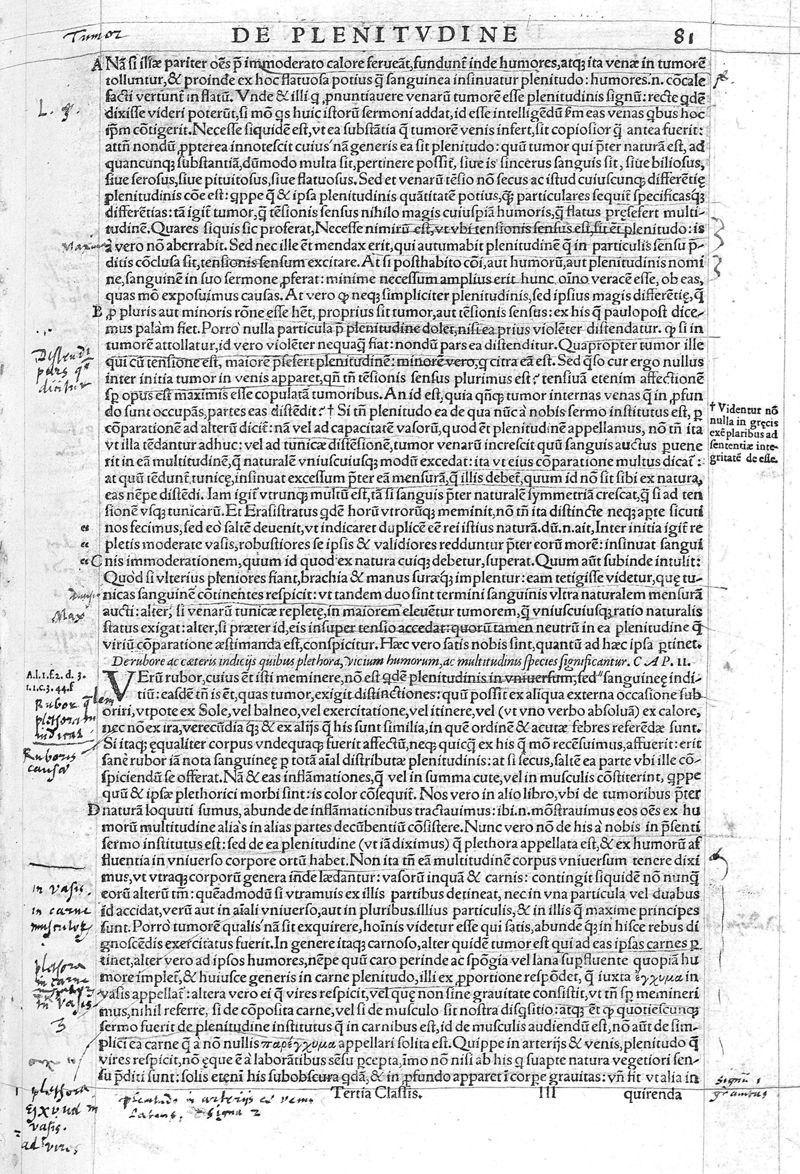 Tumor
DE PLENITVDINE 81
A Nā si illæ pariter oēs p̄ immoderato calore serueāt, fundunt̄ inde humores, atq; ita venæ in tumorē
tolluntur, & proinde ex hoc flatuosa potius q̄ sanguinea insinuatur plenitudo: humores.n. cōcale
facti vertunt̄ in flatū. Vnde & illi q pnuntiauere venarū tumorē esse plenitudinis signū: recte qdē
dixisse videri poterūt, si mō qs huic istorū sermoni addat, id esse intelligēdū fm eas venas qbus hoc
ipm cōtigerit. Necesse siquidē est, vt ea substātia q̄ tumorē venis infert, sit copiosior q̄ antea fuerit:
attn̄ nondū, ppterea innotescit cuius nā generis ea sit plenitudo: quū tumor qui p̄ter naturā est, ad
quancunq; substantiā, dūmodo multa sit, pertinere possit, siue is sincerus sanguis sit, siue biliosus,
siue serosus, siue pituitosus, siue flatuosus. Sed et venarū tēsio nō secus ac istud cuiuscunq; differētię
plenitudinis cōe est: qppe q̄ & ipsa plenitudinis quātitatē potius, q̄ particulares sequit̄ specificasq;
differētias: tā igit̄ tumor, q̄ tēsionis sensus nihilo magis cuiuspiā humoris, q̄ flatus pręsefert multi-
tudinē. Quares siquis sic proferat, Necesse nimirū est, vt vbi tensionis sensus est, sit et plenitudo: is
à vero nō aberrabit. Sed nec ille ēt mendax erit, qui autumabit plenitudinē q̄ in particulis sensu p̄-
ditis cōclusa sit, tensionis sensum excitare. At si posthabito cōi, aut humorū, aut plenitudinis nomi
ne, sanguinē in suo sermone pferat: minime necessum amplius erit hunc oīno veracē esse, ob eas,
quas mō exposuimus causas. At vero q neq; simpliciter plenitudinis, sed ipsius magis differētię, q̄
B p pluris aut minoris rōne esse hēt, proprius sit tumor, aut tēsionis sensus: ex his q̄ paulopost dice-
mus palàm fiet. Porrò nulla particula p̄ plenitudine dolet, nisi ea prius violēter distendatur. q si in
tumorē attollatur, id vero violēter nequaq̄ fiat: nondū pars ea distenditur. Quapropter tumor ille
qui cū tensione est, maiorē p̄sefert plenitudinē: minorē vero, q̄ citra eā est. Sed q̄so cur ergo nullus
inter initia tumor in venis apparet, qn̄ tn̄ tēsionis sensus plurimus est? tensiuā etenim affectionē
sp̄ opus est maximis esse copulatā tumoribus. An id est, quia qn̄q; tumor internas venas q̄ in pfun
do sunt occupās, partes eas distēdit? † Si tn̄ plenitudo ea de qua nūc à nobis sermo institutus est, p
cōparationē ad alterū dicit̄: nā vel ad capacitatē vasorū, quod ēt plenitudinē appellamus, nō tn̄ ita
vt illa tēdantur adhuc: vel ad tunicæ distēsionē, tumor venarū increscit quū sanguis auctus puene
rit in eā multitudinē, q̄ naturalē vniuscuiusq; modū excedat: ita vt eius cōparatione multus dicat̄:
at quū tēdunt̄ tunicę, insinuat excessum p̄ter eā mensurā, q̄ illis debet̄, quum id nō sit sibi ex natura,
eas nēpe distēdi. Iam igit̄ vtrunq; multū est, tā si sanguis p̄ter naturalē symmetriā crescat, q̄ si ad ten
sionē vsq; tunicarū. Et Erasistratus qdē horū vtrorūq; meminit, nō tn̄ ita distincte neq; apte sicuti
nos fecimus, sed eo saltē deuenit, vt indicaret duplicē eē rei istius naturā. dū.n.ait, Inter initia igit̄ re
pletis moderate vasis, robustiores se ipsis & validiores redduntur p̄ter eorū morē: insinuat sangui
C nis immoderationem, quum id quod ex natura cuiq; debetur, superat. Quum aūt subinde intulit:
Quòd si vlterius pleniores fiant, brachia & manus suraq; implentur: eam tetigisse videtur, quę tu-
nicas sanguinē cōtinentes respicit: vt tandem duo sint termini sanguinis vltra naturalem mensurā
aucti: alter, si venarū tunicæ repletę, in maiorem eleuētur tumorem, q̄ vniuscuiusq; ratio naturalis
status exigat: alter, si præter id, eis insuper tensio accedat: quorū tamen neutrū in ea plenitudine q̄
viriū cōparatione æstimanda est, conspicitur. Hæc vero satis nobis sint, quantū ad hæc ipsa ptinet.
De rubore ac cæteris indicijs quibus plethora, vicium humorum, ac multitudinis species significantur. CAP. 11.
VErū rubor, cuius ēt isti meminere, nō est qdē plenitudinis in vniuersum, sed sanguineę indi-
tiū: easdē tn̄ is ēt, quas tumor, exigit distinctiones: quū possit ex aliqua externa occasione sub
oriri, vtpote ex Sole, vel balneo, vel exercitatione, vel itinere, vel (vt vno verbo absoluā) ex calore,
nec nō ex ira, verecūdia q; & ex alijs q̄ his sunt similia, in quē ordinē & acutæ febres referēdæ sunt.
Si itaq; equaliter corpus vndequaq; fuerit affectū, neq; quicq̄ ex his q̄ mō recēsuimus, affuerit: erit
sanè rubor iā nota sanguineę p totā aīal distributæ plenitudinis: at si secus, saltē ea parte vbi ille cō-
spiciendū se offerat. Nā & eas inflāmationes, q̄ vel in summa cute, vel in musculis cōstiterint, qppe
quū & ipsæ plethorici morbi sint: is color cōsequit̄. Nos vero in alio libro, vbi de tumoribus p̄ter
D naturā loquuti sumus, abunde de inflāmationibus tractauimus: ibi.n. mōstrauimus eos oēs ex hu
morū multitudine alias in alias partes decūbentiū cōsistere. Nunc vero nō de his à nobis in p̄senti
sermo institutus est: sed de ea plenitudine (vt iā diximus) q̄ plethora appellata est, & ex humorū af
fluentia in vniuerso corpore ortū habet. Non ita tn̄ eā multitudinē corpus vniuersum tenere dixi
mus, vt vtraq; corporū genera īnde lædantur: vasorū inquā & carnis: contingit siquidē nō nunq̄
eorū alterū tm̄: quēadmodū si vtramuis ex illis partibus detineat, nec in vna particula vel duabus
id accidat, verū aut in aīali vniuerso, aut in pluribus illius particulis, & in illis q̄ maxime principes
sunt. Porrò tumorē qualis nā sit exquirere, hoīnis videtur esse qui satis, abunde q; in hisce rebus di
gnoscēdis exercitatus fuerit. In genere itaq; carnoso, alter quidē tumor est qui ad eas ipsas carnes p
tinet, alter vero ad ipsos humores, nēpe quū caro perinde ac spōgia vel lana supfluente quopiā hu
more implet̄, & huiusce generis in carne plenitudo, illi ex pportione respōdet, q̄ iuxta ἔγχυμα in
vasis appellat̄: altera vero ei q̄ vires respicit, vel quę non sine grauitate consistit, vt tn̄ sp̄ memineri
mus, nihil referre, si de cōposita carne, vel si de musculo sit nostra disqsitio: atq; ēt q quotiescunq;
sermo fuerit de plenitudine institutus q̄ in carnibus est, id de musculis audiendū est, nō aūt de sim-
plici ea carne q̄ à nō nullis παρέγχυμα appellari solita est. Quippe in arterijs & venis, plenitudo q̄
vires respicit, nō ęque ē a laborātibus sēsu pcepta, īmo nō nisi ab his q suapte natura vegetiori sen-
su p̄diti sunt: solis eteni his subobscura qdā, & in pfundo apparet ī corpe grauitas: vn̄ fit vt alia in
Tertia Classis. III quirenda
† Videntur nō
nulla in gręcis
exēplaribus ad
sententiæ inte-
gritatē de esse.
Distendi
pars q̄
dicitur
Max
A.l.1.f.2.d.3.
Rubor q̄
plethoram
indicat
Ruboris
causa
in vasis.
in carne
musculos
plethora
in carne
in vasis
3
plethora
vasis.
ad vires
plenitudo in arterijs et venis
latens, signa 2
signū 1
grauitas